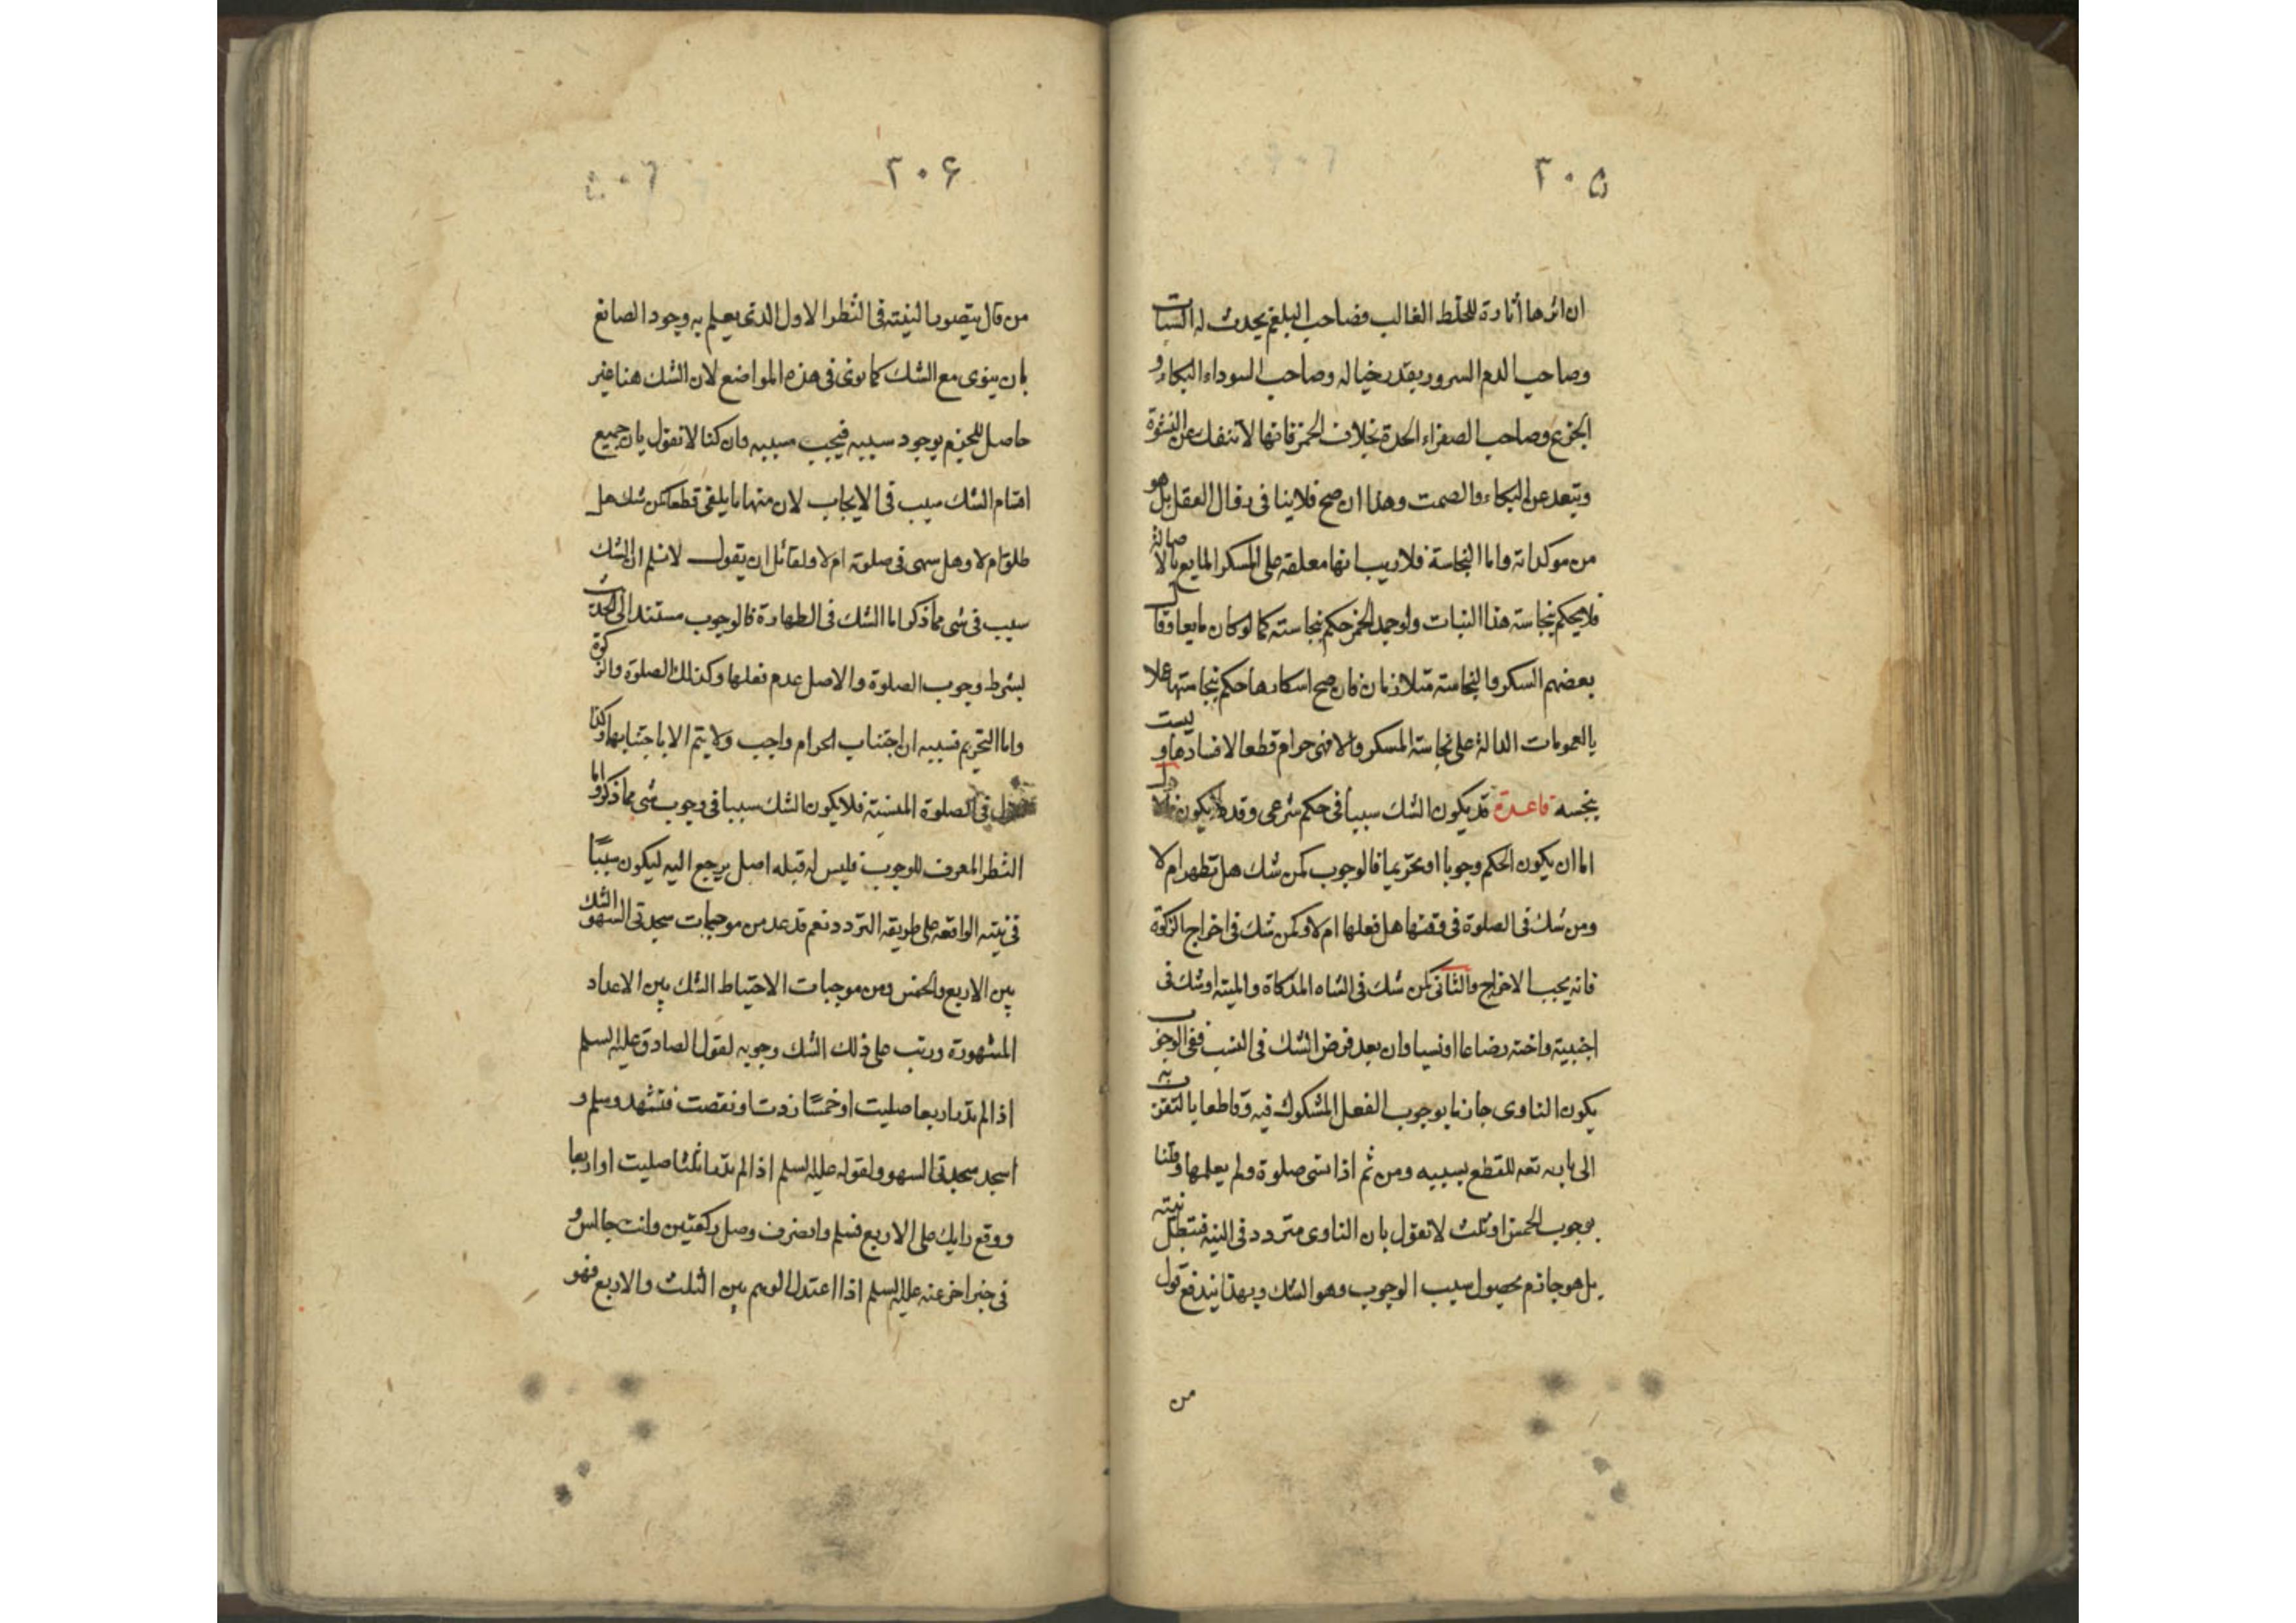 ٢٠۵
ان اثرها أثارة للخلط الغالب فصاحب البلغم يحدث له السبات
وصاحب الدم السرور بقدر خياله وصاحب السوداء البكاء و
الجزع وصاحب الصفراء الحدة بخلاف الخمر فانها لا تنفك عن النشوة
وتبعد عن البكاء والصمت وهذا ان صح فلا ينافى زوال العقل بل هو
من موكداته واما النجاسة فلاريب انها معلقة على المسكر المايع بالاصالة
فلا يحكم بنجاسة هذا النبات ولو جمد الخمر حكم بنجاسته كما لو كان مايعا وقال
بعضهم السكر والنجاسة متلازمان فان صح اسكارها حكم بنجاستها عملا
بالعمومات الدالة على نجاسة المسكر والا فهى حرام قطعا لافسادها وليست
بنجسه قاعدة قد يكون الشك سببا فى حكم شرعى وقد لا يكون فالاول
اما ان يكون الحكم وجوبا او تحريما فالوجوب كمن شك هل تطهر ام لا
ومن شك فى الصلوة فى وقتها هل فعلها ام لا وكمن شك فى اخراج الزكوة
فانه يجب الاخراج والثانى كمن شك فى الشاه المذكاة والميتة او شك فى
اجنبية واخته رضاعا او نسبا وان بعد فرض الشك فى النسب ففى الوجوب
يكون الناوى جازما بوجوب الفعل المشكوك فيه وقاطعا بالتقرب به
الى بابه تعه للقطع بسببه ومن ثم اذا نسى صلوة ولم يعلمها وقلنا
بوجوب الخمس او ثلث لا نقول بان الناوى متردد فى النية فتبطل نيته
بل هو جازم بحصول سبب الوجوب وهو الشك وبهذا يندفع قول
من
٢٠۶
من قال يتصور النية فى النظر الاول الذى يعلم به وجود الصانع
بان ينوى مع الشك كما نوى فى هذه المواضع لان الشك هنا غير
حاصل للجزم بوجود سببه فيجب مسببه وان كنا لا نقول بان جميع
اقسام الشك سبب فى الايجاب لان منها ما يلغى قطعا كمن شك هل
طلق ام لا وهل سهى فى صلوته ام لا ولقائل ان يقول لا نسلم ان الشك
سبب فى شى مما ذكر اما الشك فى الطهارة فالوجوب مستند الى الحدث
بشرط وجوب الصلوة والاصل عدم فعلها وكذلك الصلوة والزكوة
واما التحريم فسببه ان اجتناب الحرام واجب ولا يتم الا باجتنابهما وكذا
فى الصلوة المنسية فلا يكون الشك سببا فى وجوب شى مما ذكروا اما
النظر المعرف للوجوب فليس له قبله اصل يرجع اليه ليكون سببًا
فى نيته الواقعه على طريقه التردد نعم قد عد من موجبات سجدتى السهو الشك
بين الاربع والخمس ومن موجبات الاحتياط الشك بين الاعداد
المشهورة ورتب على ذلك الشك وجوبه لقول الصادق عليه السلم
اذا لم تدر اربعا صليت او خمسًا زدت او نقصت فتشهد وسلم و
اسجد سجدتى السهو ولقوله عليه السلم اذا لم تدر اثلثا صليت او اربعا
ووقع رايك على الاربع فسلم وانصرف وصل ركعتين وانت جالس و
فى خبر اخر عنه عليه السلم اذا اعتدل الوهم بين الثلث والاربع فهو